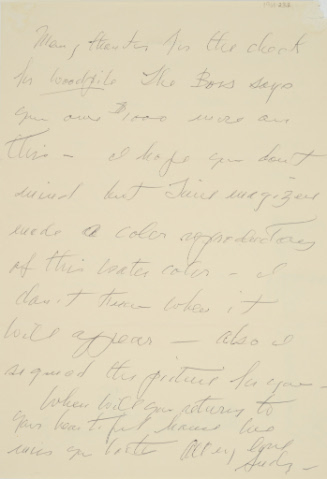 Many thanks for the check
for Woodpile The Boss says
you owe $1000 more on
this - I hope you don't
mind but Time magizine
made a color reproduction
of this water color - I
don't know when it
will appear - also I
signed the picture for you -
When will you return to
your beautiful house we
miss you both Andy -